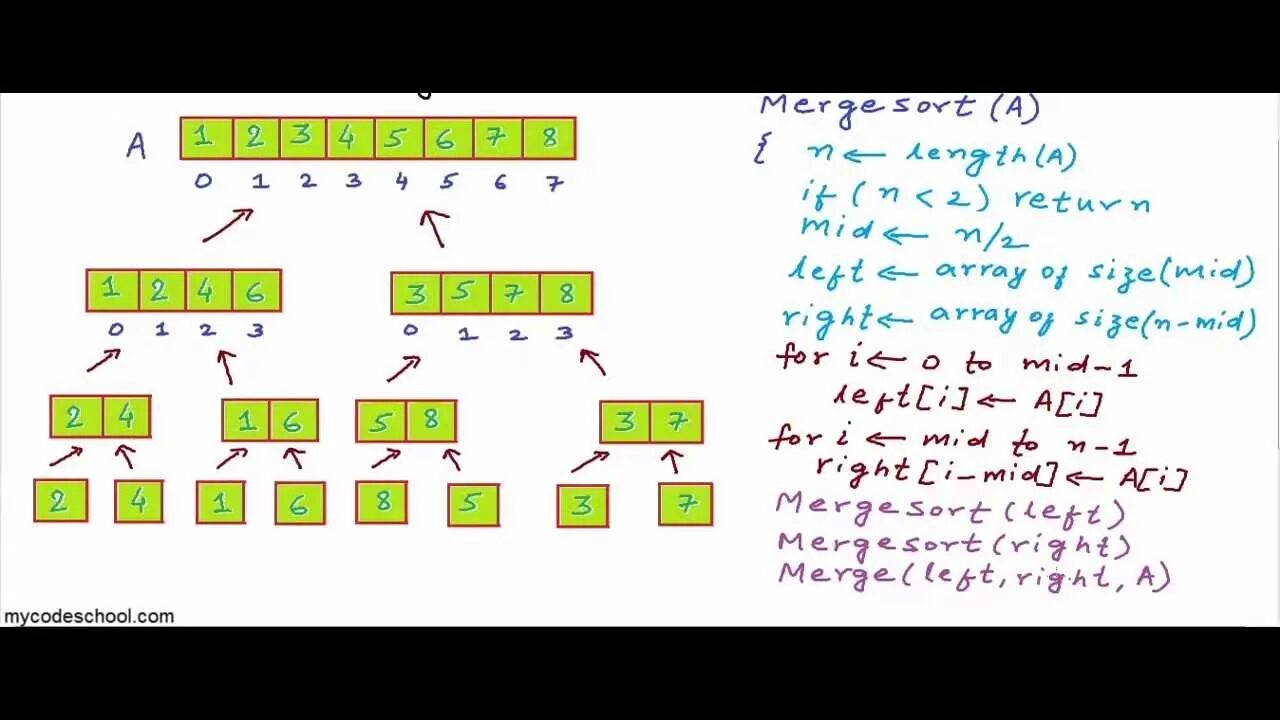 A 1 2 3 4 5 6 7 8
0 1 2 3 4 5 6 7
1 2 4 6 3 5 7 8
0 1 2 3 0 1 2 3
2 4 1 6 5 8 3 7
2 4 1 6 8 5 3 7
mycodeschool.com
Mergesort(A)
{ n ← length(A)
if (n < 2) return
mid ← n/2
left ← array of size(mid)
right ← array of size(n-mid)
for i ← 0 to mid-1
left[i] ← A[i]
for i ← mid to n-1
right[i-mid] ← A[i]
Mergesort(left)
Mergesort(right)
Merge(left, right, A)